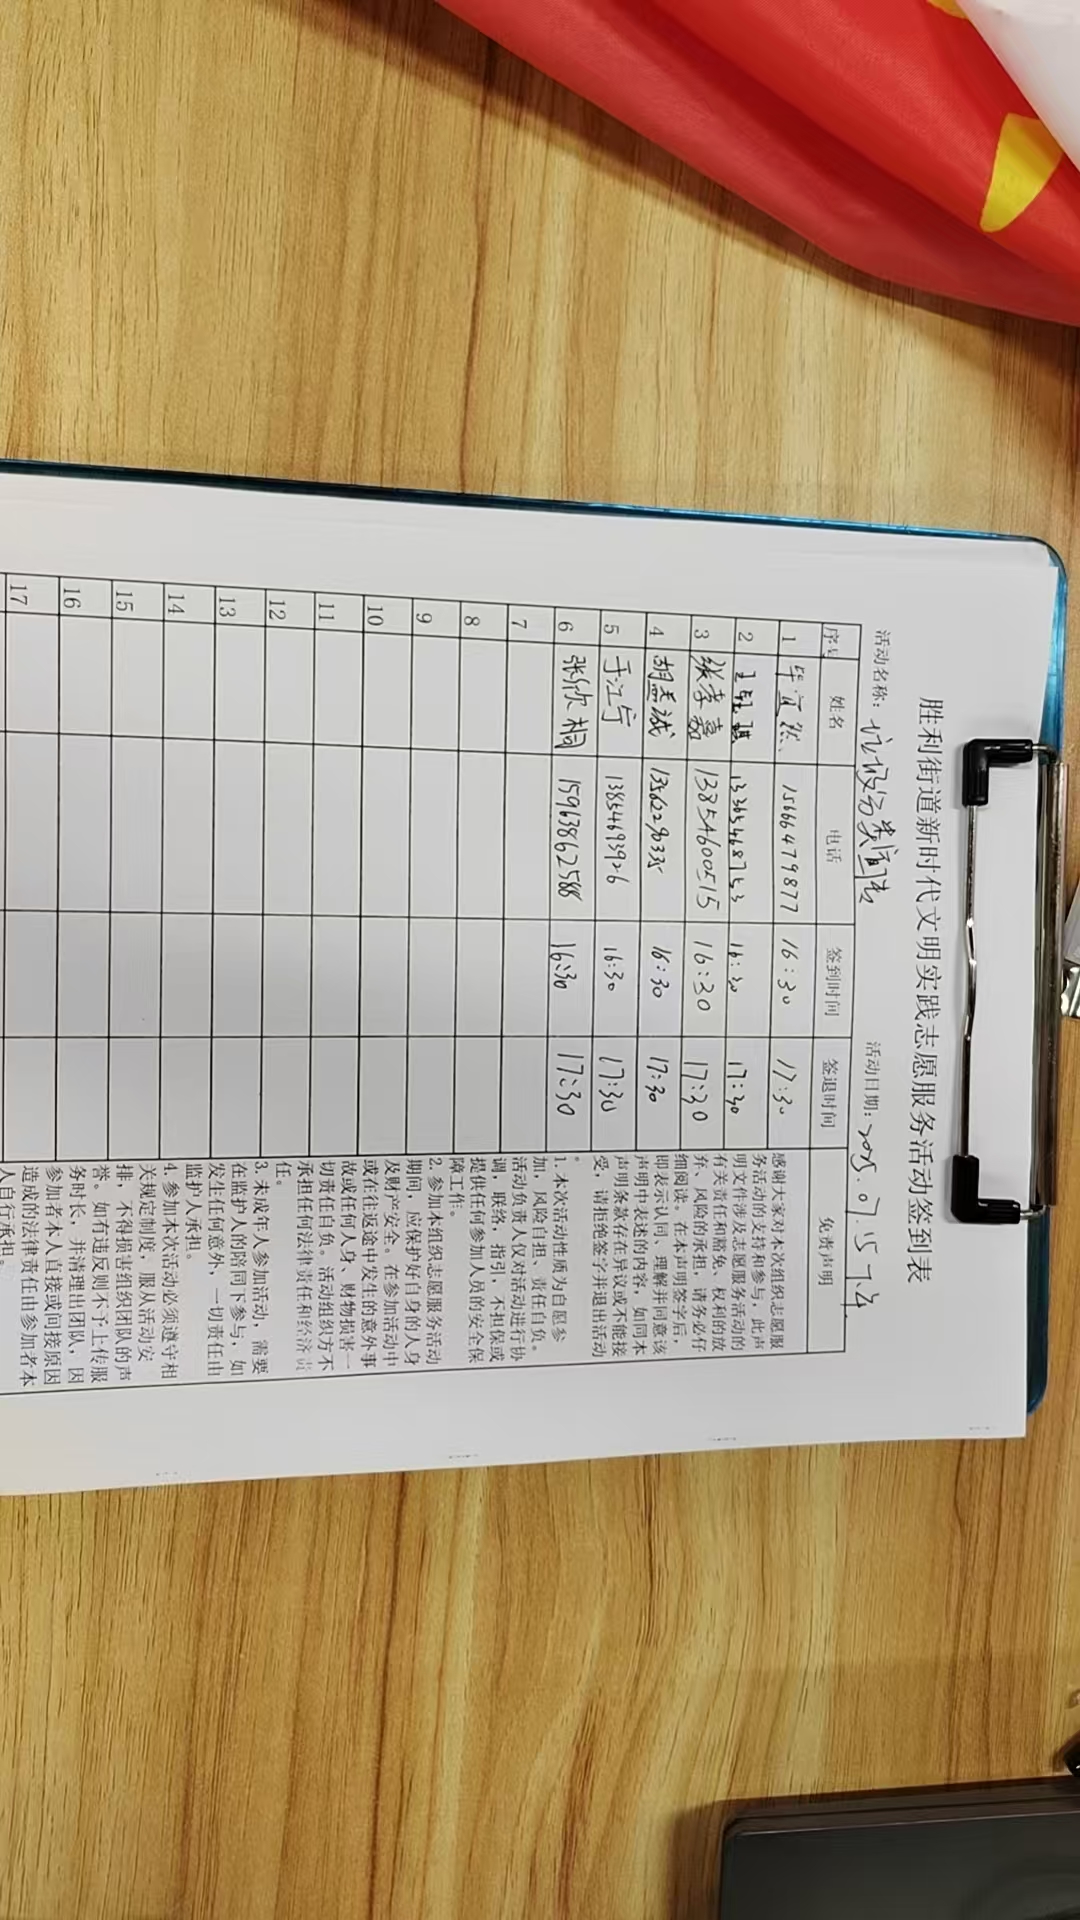 胜利街道新时代文明实践志愿服务活动签到表
活动名称：垃圾分类宣传 活动日期：2025.07.15 下午
序号 姓名 电话 签到时间 签退时间 免责声明
1 毕宜然 15666479877 16:30 17:30
2 13365468753 16:30 17:30
3 张李嘉 13854600515 16:30 17:30
4 胡孟诚 13562290335 16:30 17:30
5 于江宁 13854693926 16:30 17:30
6 张欣桐 15963862588 16:30 17:30
7
8
9
10
11
12
13
14
15
16
17
感谢大家对本次组织志愿服
务活动的支持和参与，此声
明文件涉及志愿服务活动的
有关责任和豁免、权利的放
弃、风险的承担，请务必仔
细阅读。在本声明签字后，
即表示认同、理解并同意该
声明中表述的内容，如同本
声明条款存在异议或不能接
受，请拒绝签字并退出活动
。
1. 本次活动性质为自愿参
加，风险自担、责任自负。
活动负责人仅对活动进行协
调，联络，指引，不担保或
提供任何参加人员的安全保
障工作。
2. 参加本组织志愿服务活动
期间，应保护好自身的人身
及财产安全。在参加活动中
或在往返途中发生的意外事
故或任何人身、财物损害一
切责任自负。活动组织方不
承担任何法律责任和经济责
任。
3. 未成年人参加活动，需要
在监护人的陪同下参与，如
发生任何意外，一切责任由
监护人承担。
4. 参加本次活动必须遵守相
关规定制度，服从活动安
排，不得损害组织团队的声
誉。如有违反则不予上传服
务时长，并清理出团队，因
参加者本人直接或间接原因
造成的法律责任由参加者本
人自行承担。